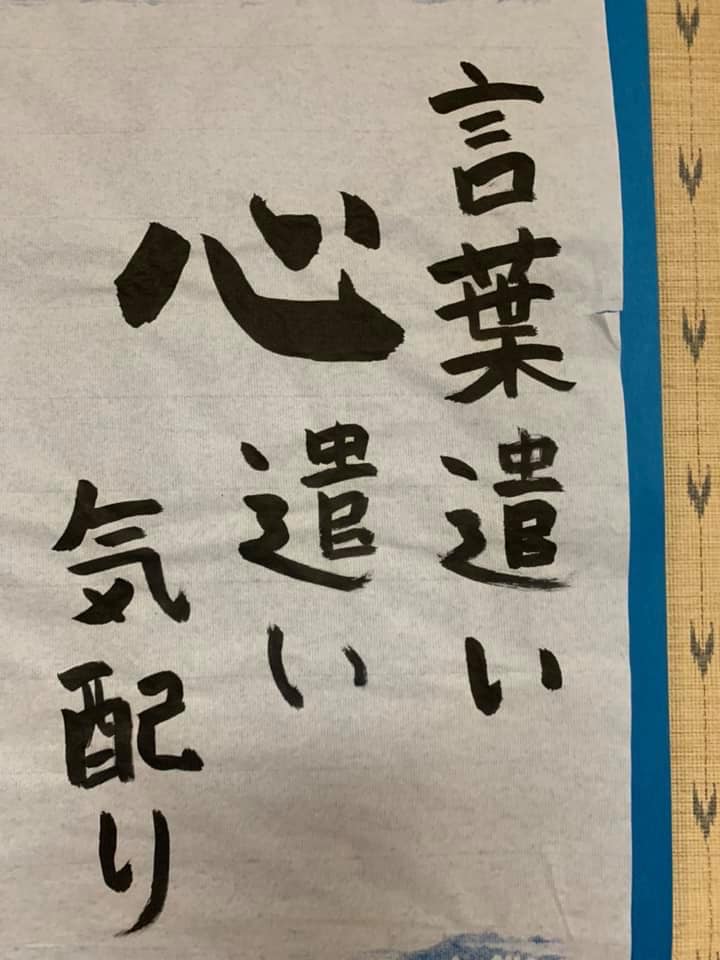 言葉遣い
心遣い
気配り